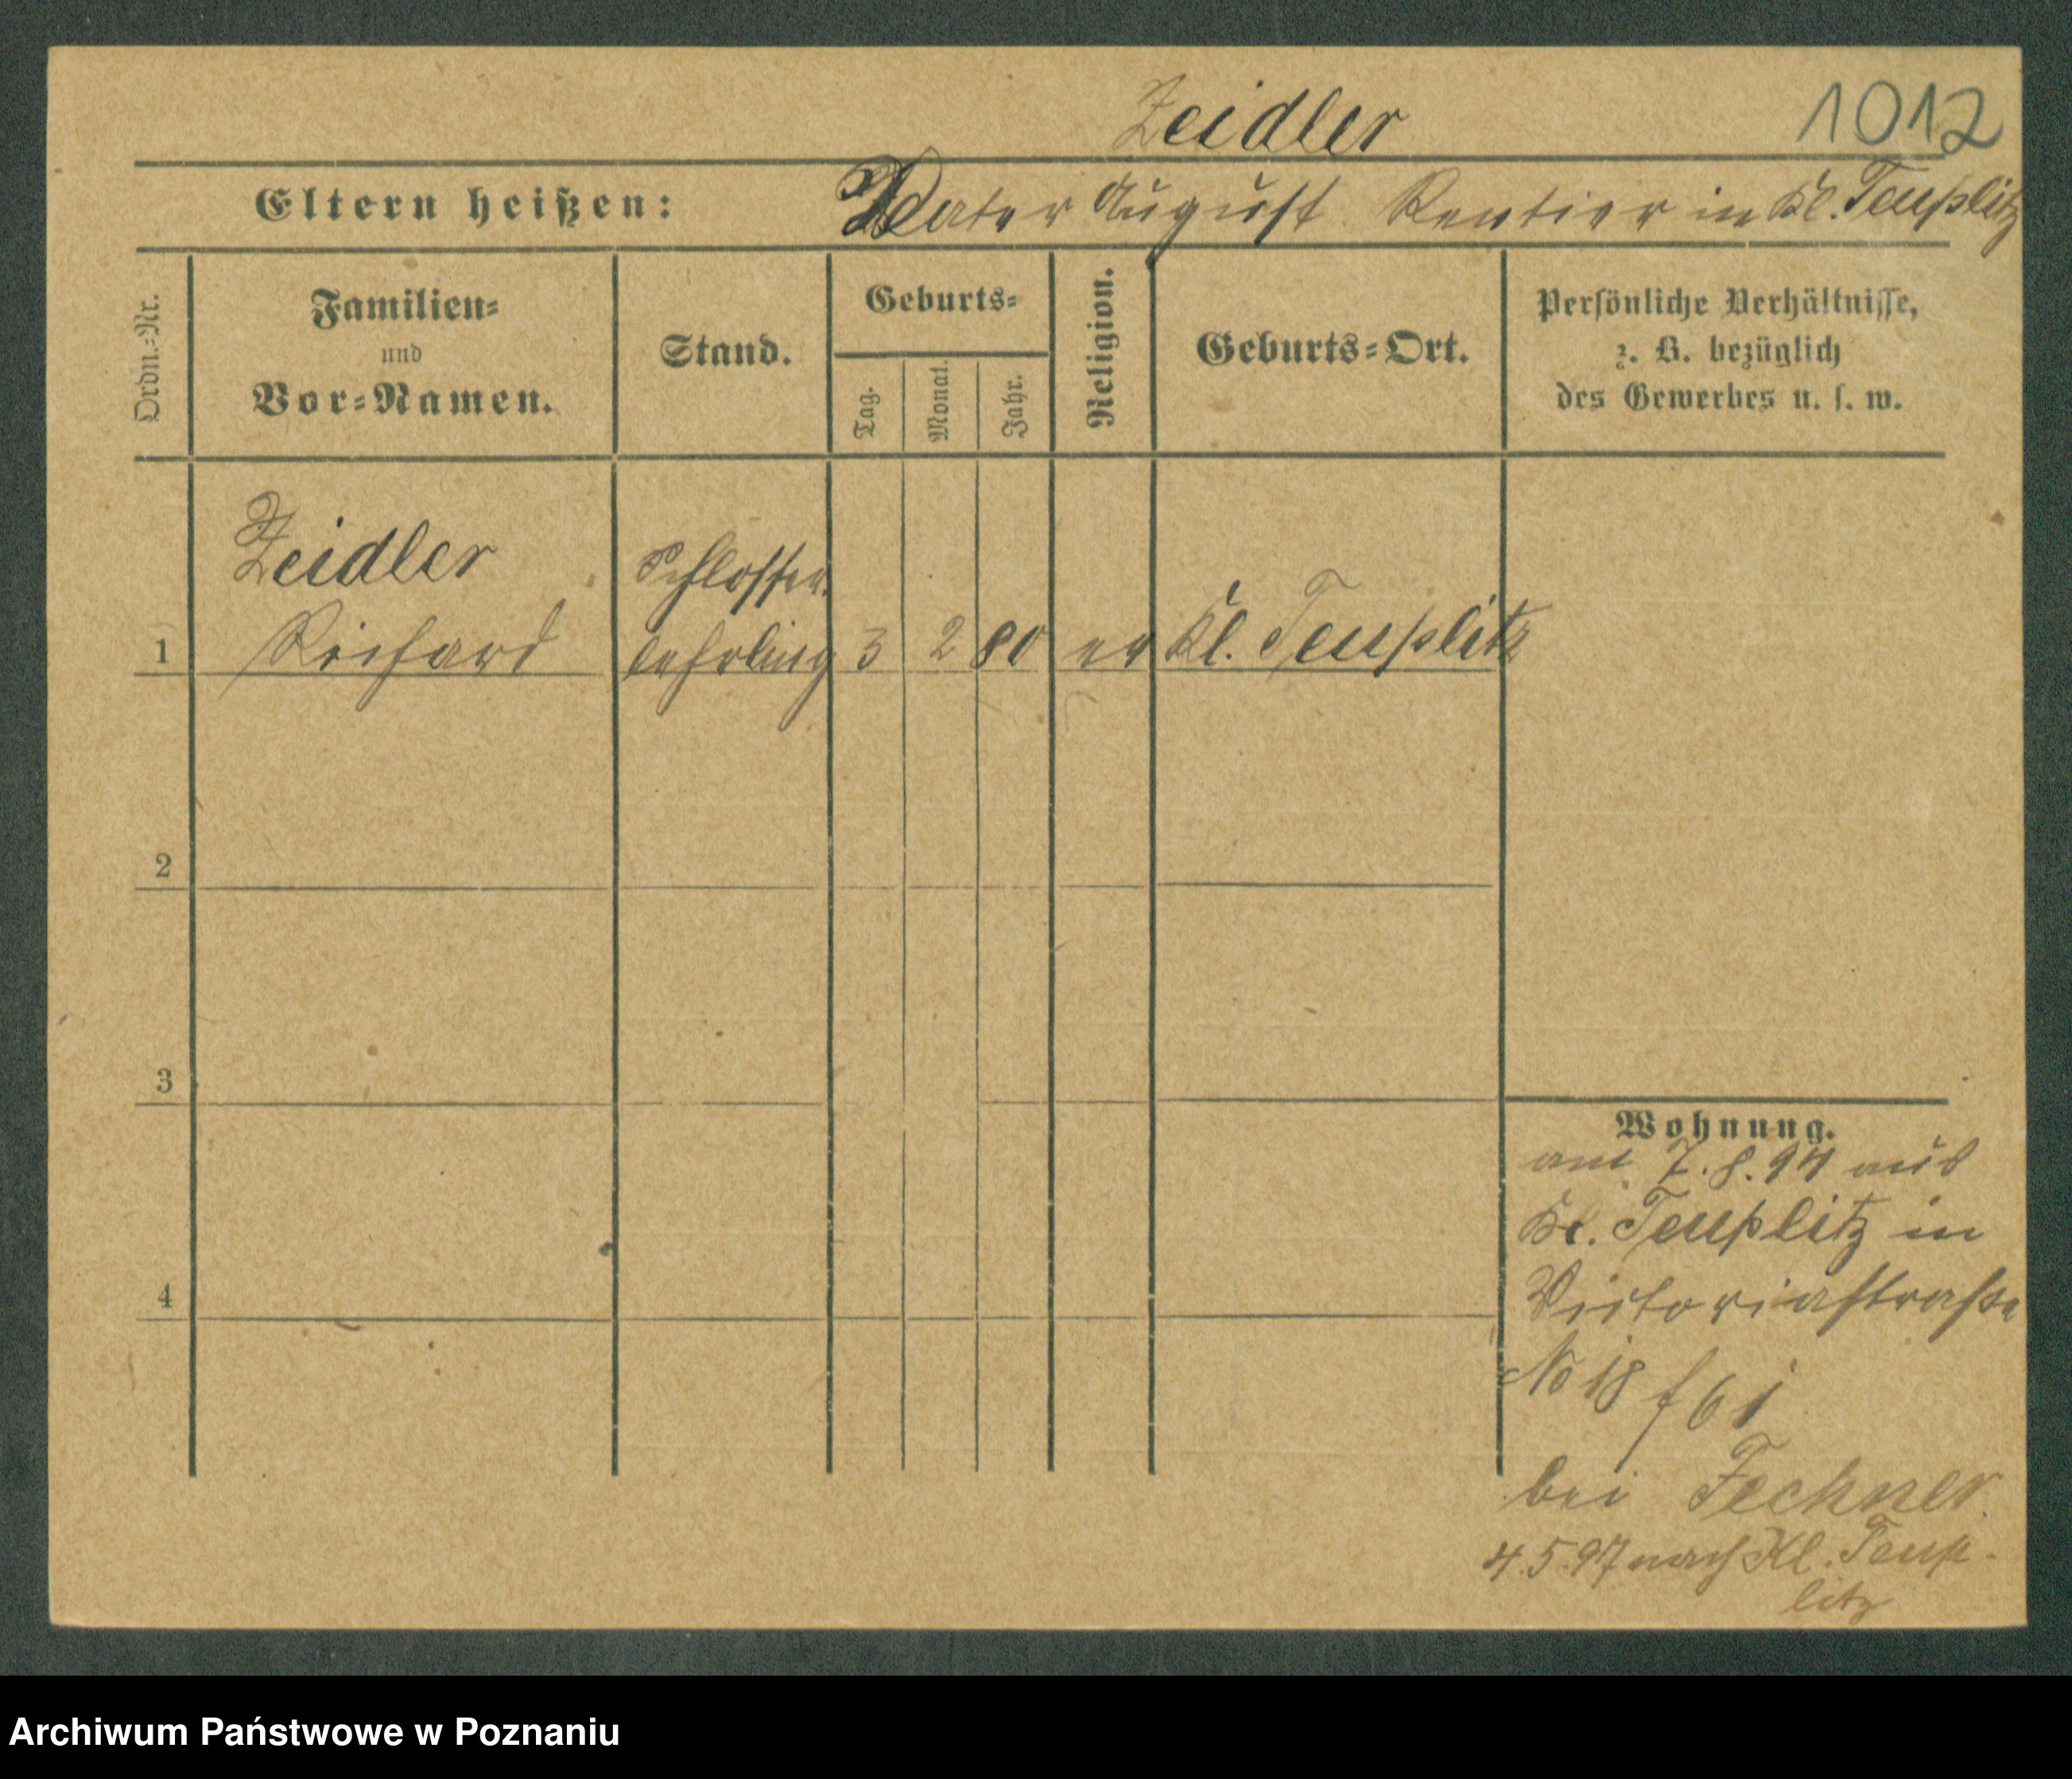 Zeidler
1012
Eltern heißen: Vater August Rentier in Kl. Teuplitz
Ordn.-Nr.
Familien-
und
Vor-Namen.
Stand.
Geburts-
Tag.
Monat.
Jahr.
Religion.
Geburts-Ort.
Persönliche Verhältnisse,
z. B. bezüglich
des Gewerbes u. s. w.
Zeidler Schlosser
1 Richard lehrling 3 2 80 ev Kl. Teuplitz
2
3
4
Wohnung.
am 7.8.94 aus
Kl. Teuplitz in
Victoriastraße
No 18 f 61
bei Fechner.
4.5.97 nach Kl. Teup-
litz
Archiwum Państwowe w Poznaniu